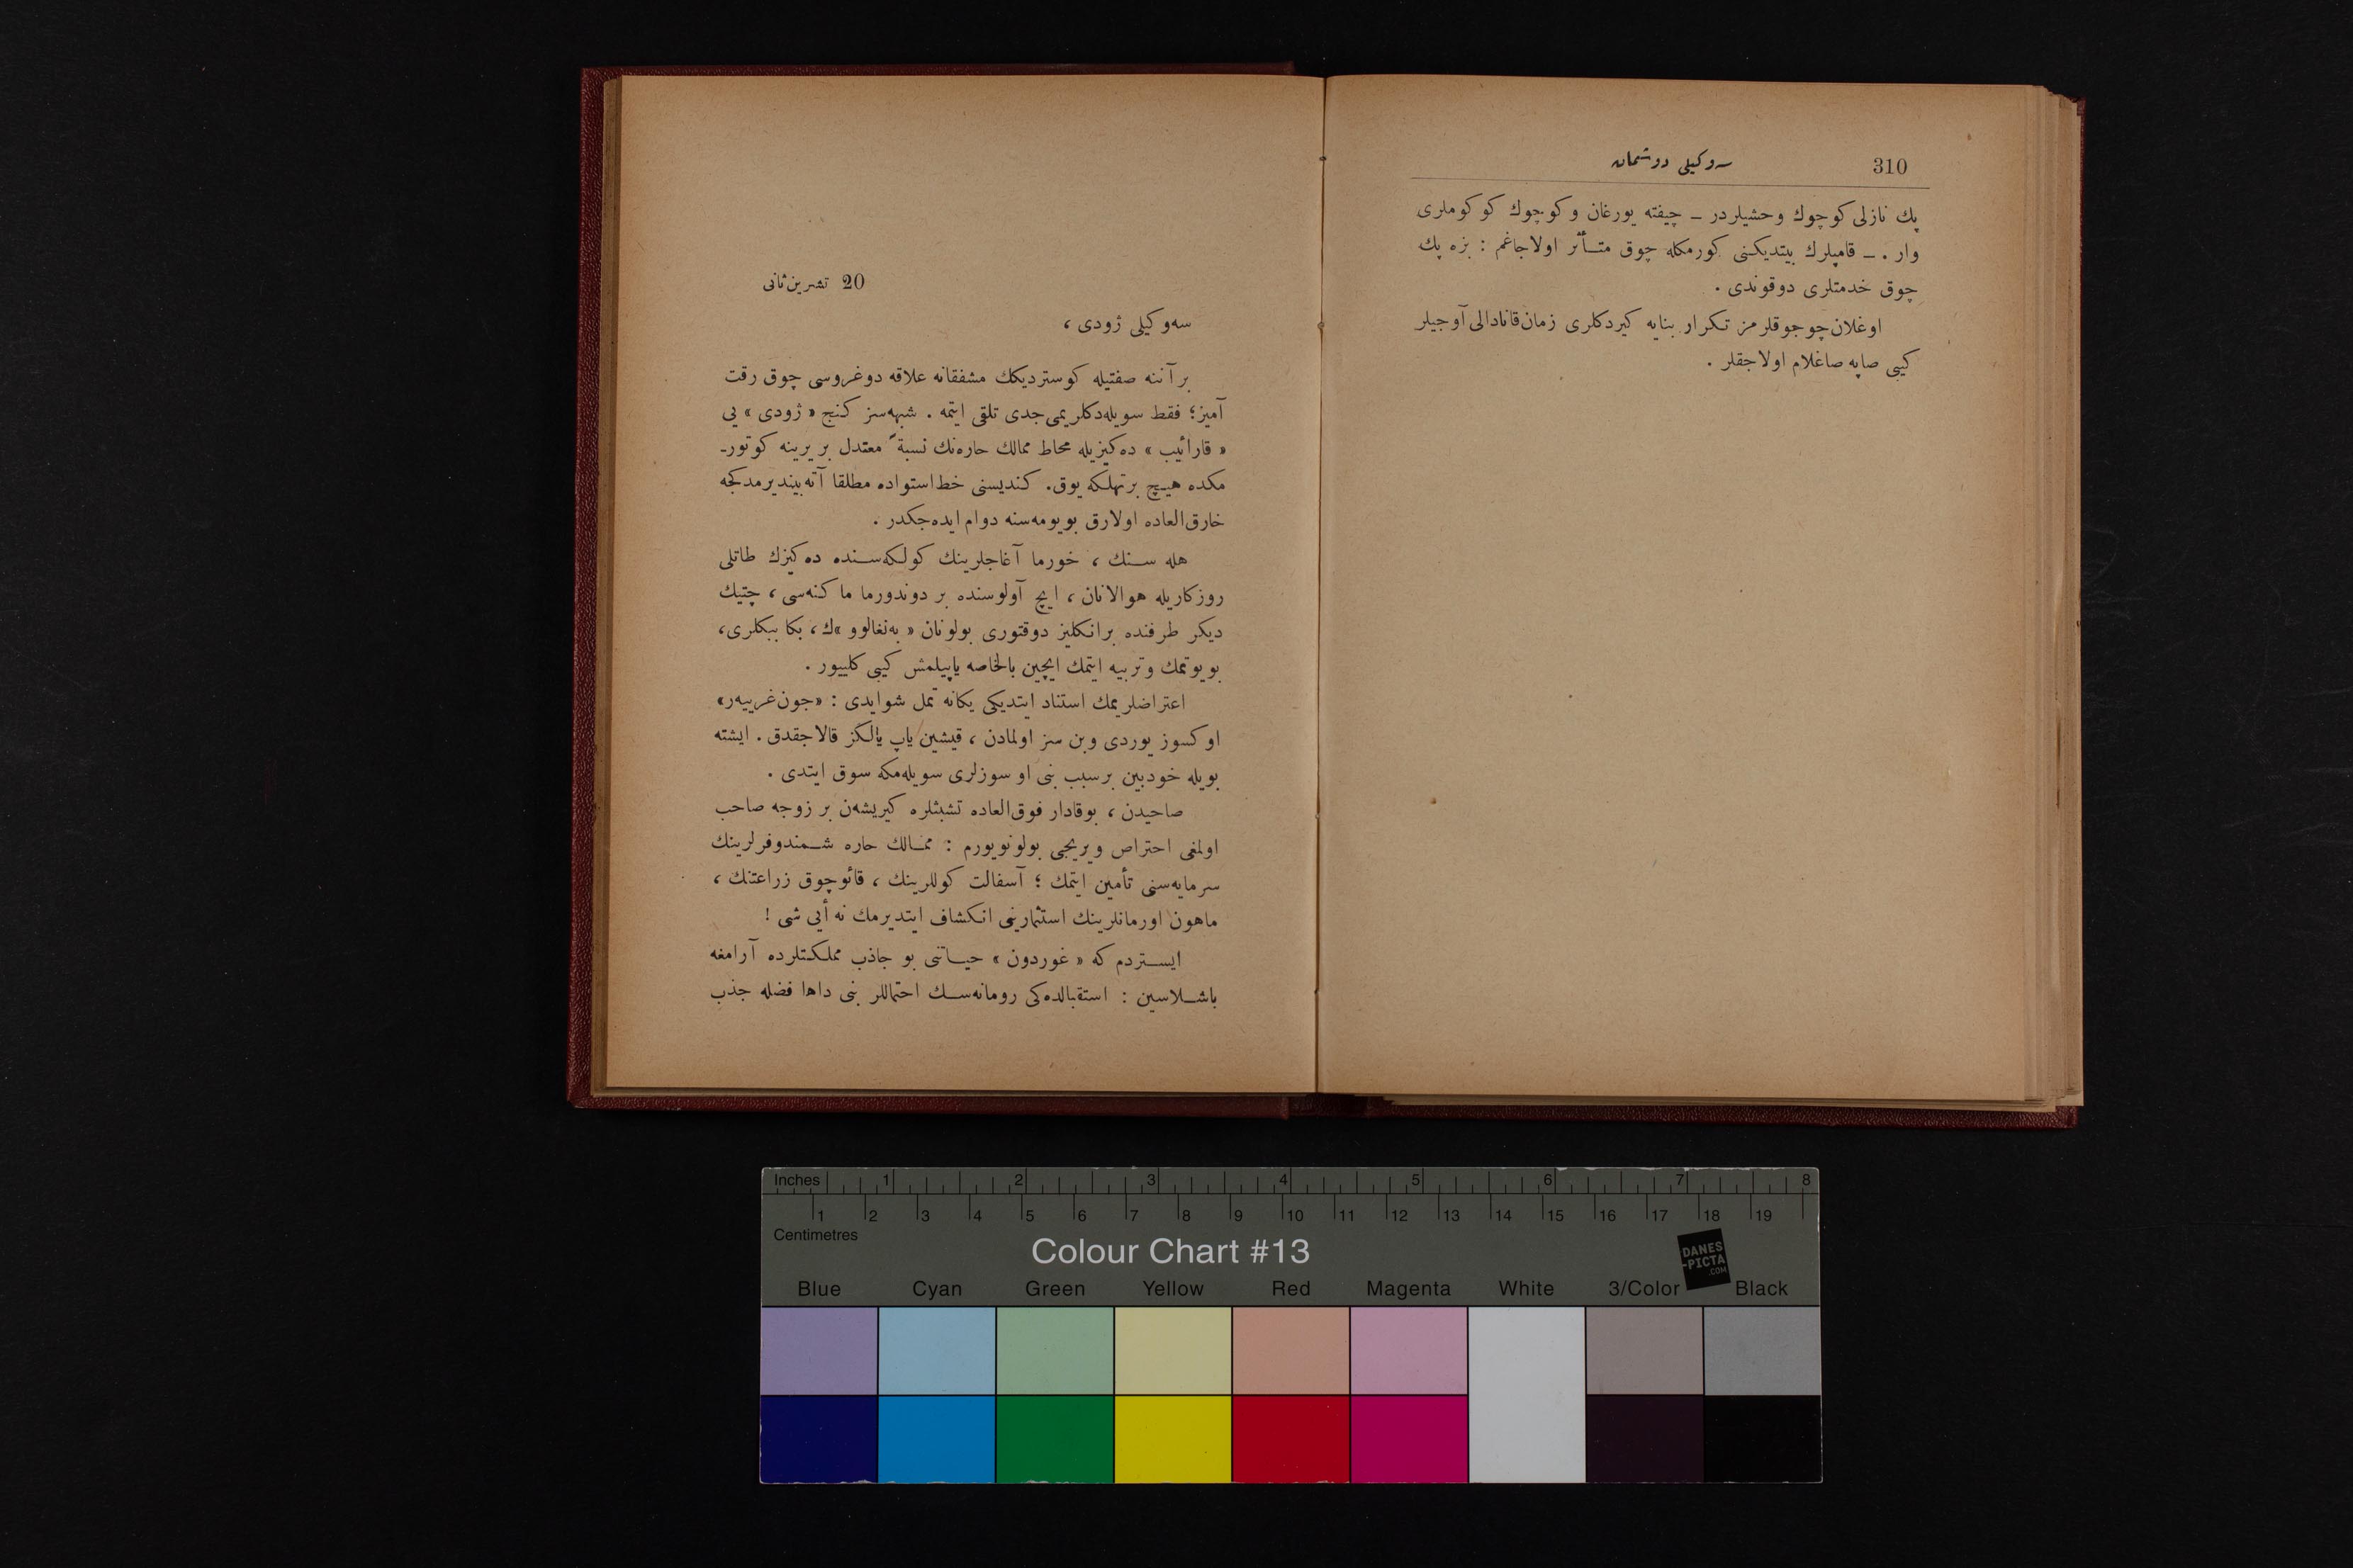 310 سه‌وكیلی دوشمان
پك نازلی كوچوك وحشیلردر ـ چیفته یورغان و كوچوك كوكوملری
وار . ـ قامپلرك بیتدیكنی كورمكله چوق متـأثر اولاجاغم : بزه پك
چوق خدمتلری دوقوندی .
اوغلان چوجوقلرمز تكرار بنایه كیردكلری زمان قانادالی آوجیلر
كیبی صاپه صاغلام اولاجقلر .
20 تشرین ثانی
سه‌وكیلی ژودی ،
بر آننه صفتیله كوستردیكك مشفقانه علاقه دوغروسی چوق رقت
آمیز ؛ فقط سویله‌دكلریمی جدی تلقی ایتمه . شبهه‌سز كنج « ژودی » یی
« قارائیب » ده‌كیزیله محاط ممالك حاره‌نك نسبةً معتدل بر یرینه كوتورـ
مكده هیـچ بر تهلكه یوق. كندیسنی خط استواده مطلقا آته بیندیرمدكجه
خارق‌العاده اولارق بویومه‌سنه دوام ایده‌جكدر .
هله سـنك ، خورما آغاجلرینك كولكه‌سـنده ده‌كیزك طاتلی
روزكاریله هوالانان ، ایچ آولوسنده بر دوندورما ماكنه‌سی ، چتیك
دیكر طرفنده بر انكلیز دوقتوری بولونان « به‌نغالوو »ك ، بكا ببكلری ،
بویوتمك و تربیه ایتمك ایچین بالخاصه یاپیلمش كیبی كلییور .
اعتراضلریمك استناد ایتدیكی یكانه تمل شو ایدی : «جون غرییه‌ر»
اوكسوز یوردی و بن سز اولمادن ، قیشین یاپ یالكز قالاجقدق . ایشته
بویله خودبین بر سبب بنی او سوزلری سویله‌مكه سوق ایتدی .
صاحیدن ، بوقادار فوق‌العاده تشبثلره كیریشه‌ن بر زوجه صاحب
اولمغی احتراص ویریجی بولونویورم : ممـالك حاره شـمندوفرلرینك
سرمایه‌سنی تأمین ایتمك ؛ آسفالت كوللرینك ، قائوچوق زراعتنك ،
ماهون اورمانلرینك استثمارینی انكشاف ایتدیرمك نه أیی شی !
ایسـتردم كه « غوردون » حیـاتنی بو جاذب مملكتلرده آرامغه
باشـلاسین : استقبالده‌كی رومانه‌سـك احتماللر بنی داها فضله جذب
Inches 1 2 3 4 5 6 7 8
1 2 3 4 5 6 7 8 9 10 11 12 13 14 15 16 17 18 19
Centimetres
Colour Chart #13
DANES
-PICTA
.COM
Blue Cyan Green Yellow Red Magenta White 3/Color Black